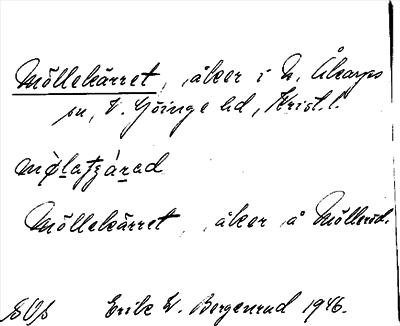 Möllekärret, åker i N. Åkarps
sn, V. Göinge hd, Krist. l.
møⱡatʃárad
Möllekärret, åker å Mölleröd.
Erik W. Bergenrud 1946.